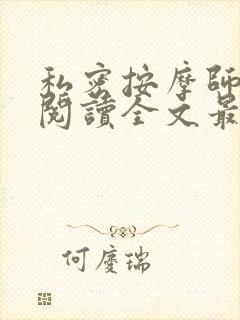 私密按摩師
閱讀全文最
何慶瑞